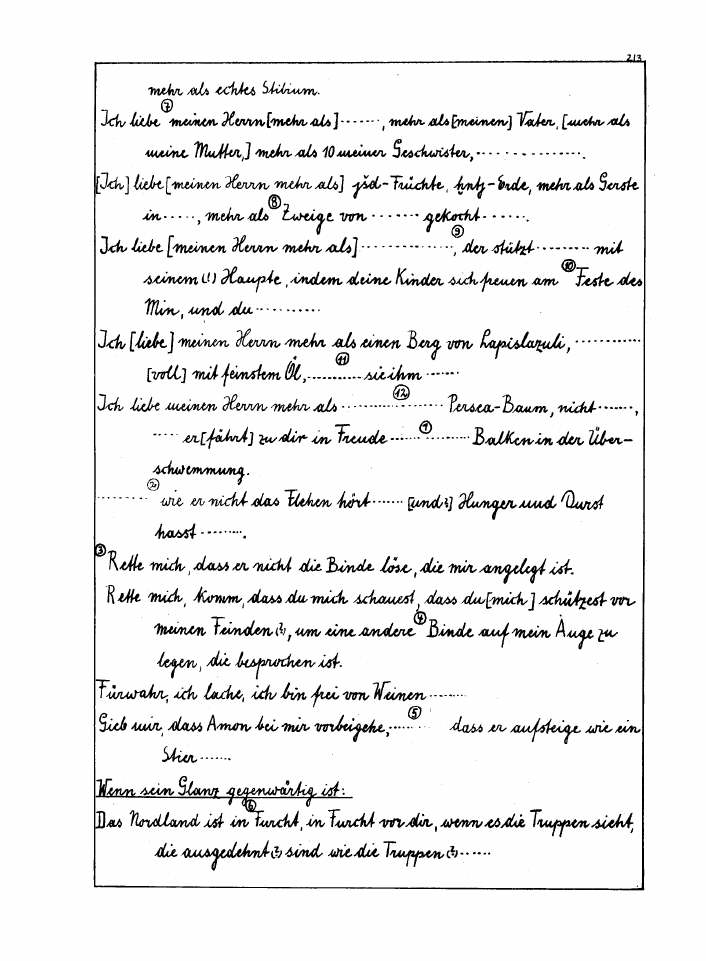 213
mehr als echtes Stibium.
Ich liebe ⑦ meinen Herrn [mehr als] ......., mehr als [meinen] Vater, [mehr als
meine Mutter,] mehr als 10 meiner Geschwister, ................
[Ich] liebe [meinen Herrn mehr als] jšd-Früchte, ḥntj-Erde, mehr als Gerste
in ....., mehr als ⑧ Zweige von ....... gekocht .......
Ich liebe [meinen Herrn mehr als] .............. ⑨, der stützt ......... mit
seinem (!) Haupte, indem deine Kinder sich freuen am ⑩ Feste des
Min, und du ..........
Ich [liebe] meinen Herrn mehr als einen Berg von Lapislazuli, ............
[voll] mit feinstem Öl, .......... ⑪ sie ihm ......
Ich liebe meinen Herrn mehr als .......... ⑫ ....... Persea-Baum, nicht .......,
..... er [fährt] zu dir in Freude ...... ① ........ Balken in der Über-
schwemmung.
......... ② wie er nicht das Flehen hört ...... [und?] Hunger und Durst
hasst .........
③ Rette mich, dass er nicht die Binde löse, die mir angelegt ist.
Rette mich, komm, dass du mich schauest, dass du [mich] schützest vor
meinen Feinden (?), um eine andere ④ Binde auf mein Auge zu
legen, die besprochen ist.
Fürwahr, ich lache, ich bin frei von Weinen .......
Gieb mir, dass Amon bei mir vorbeigehe, ...... ⑤ dass er aufsteige wie ein
Stier ......
Wenn sein Glanz gegenwärtig ist:
Das Nordland ist in ⑥ Furcht, in Furcht vor dir, wenn es die Truppen sieht,
die ausgedehnt (?) sind wie die Truppen (?) ......